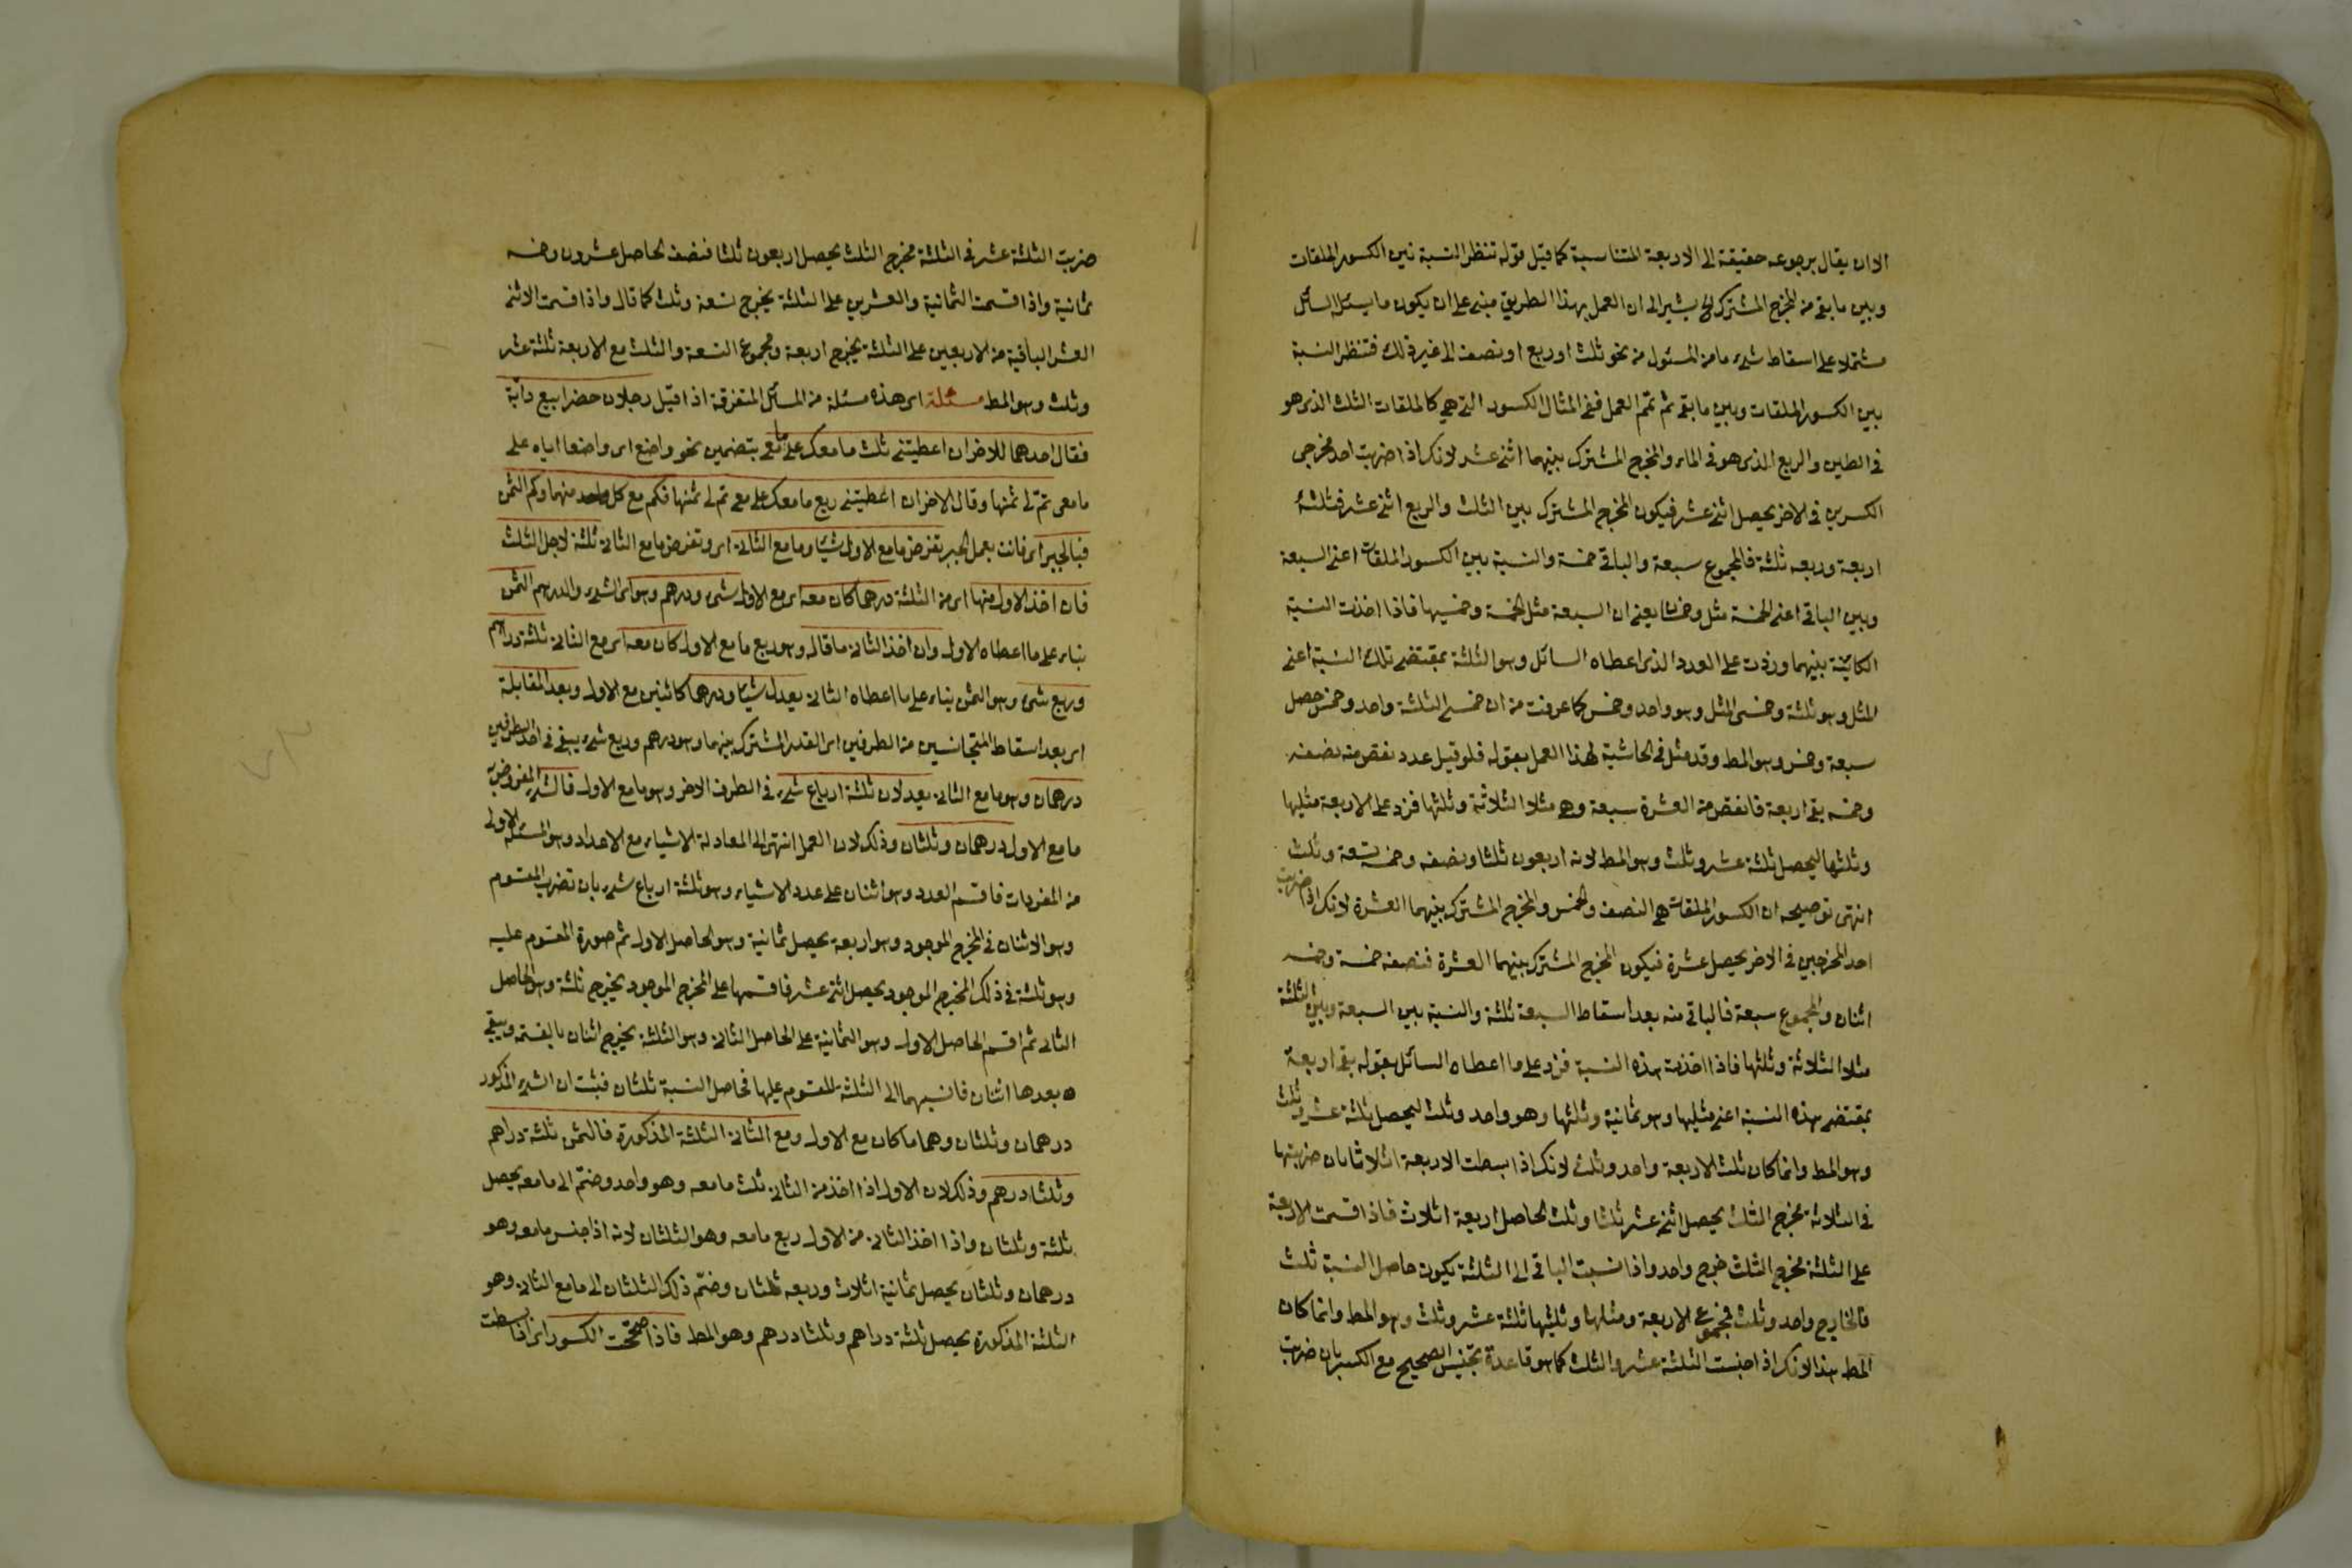 الا ان يقال برجوعه حقيقة الى الاربعة المتناسبة كما قيل قوله تنظر النسبة بين الكسور الملقات
وبين ما بقى من المخرج المشترك الخ يشير الى ان العمل بهذا الطريق مبنى على ان يكون ما يسئل السائل
مشتملا على اسقاط شىء ما من المسئول من نحو ثلث او ربع او نصف الى غير ذلك فتنظر النسبة
بين الكسور الملقات وبين ما بقى ثم تمم العمل ففى المثال الكسور التى هى كالملقات الثلث الذى هو
فى الطين والربع الذى هو فى الماء والمخرج المشترك بينهما اثنى عشر لانك اذا ضربت احد مخرجى
الكسرين فى الاخر يحصل اثنى عشر فيكون المخرج المشترك بين الثلث والربع اثنى عشر فثلثه
اربعة وربعه ثلثة فالمجموع سبعة والباقى خمسة والنسبة بين الكسور الملقات اعنى السبعة
وبين الباقى اعنى الخمسة مثل وخمسان يعنى ان السبعة مثل الخمسة وخمسيها فاذا اخذت النسبة
الكائنة بينهما وزدت على العدد الذى اعطاه السائل وهو الثلثة بمقتضى تلك النسبة اعنى
المثل وهو ثلثة وخمسى المثل وهو واحد وخمس كما عرفت من ان خمسى الثلثة واحد وخمس حصل
سبعة وخمس وهو المط وقد مثل فى الحاشية لهذا العمل بقوله فلو قيل عدد نقص منه نصفه
وخمسه بقى اربعة فانقص من العشرة سبعة وهى مثلا الثلاثة وثلثها فزد على الاربعة مثليها
وثلثها ليحصل ثلثة عشر وثلث وهو المط لانه اربعون ثلثا ونصفه وخمسه تسعة وثلث
انتهى توضيحه ان الكسور الملقات هى النصف والخمس والمخرج المشترك بينهما العشرة لانك اذا ضربت
احد المخرجين فى الاخر يحصل عشرة فيكون المخرج المشترك بينهما العشرة فنصفه خمسة وخمسه
اثنان والمجموع سبعة فالباقى منه بعد اسقاط السبعة ثلثة والنسبة بين السبعة وبين الثلثة
مثلا الثلاثة وثلثها فاذا اخذت هذه النسبة فزد على ما اعطاه السائل بقوله بقى اربعة
بمقتضى هذه النسبة اعنى مثليها وهو ثمانية وثلثها وهو واحد وثلث ليحصل ثلثة عشر وثلث
وهو المط وانما كان ثلث الاربعة واحد وثلث لانك اذا بسطت الاربعة اثلاثا بان ضربتها
فى الثلاثة مخرج الثلث يحصل اثنى عشر ثلثا وثلث الحاصل اربعة اثلاث فاذا قسمت الاربعة
على الثلثة مخرج الثلث خرج واحد واذا نسبت الباقى الى الثلثة يكون حاصل النسبة ثلث
فالخارج واحد وثلث فمجموع الاربعة ومثلها وثلثها ثلثة عشر وثلث وهو المط وانما كان
المط هذا لانك اذا جنست الثلثة عشر والثلث كما هو قاعدة تجنيس الصحيح مع الكسر بان ضربت
ضربت الثلثة عشر فى الثلثة مخرج الثلث يحصل اربعون ثلثا فنصف الحاصل عشرون وخمسه
ثمانية واذا قسمت الثمانية والعشرين على الثلثة يخرج تسعة وثلث كما قال واذا قسمت الاثنى
العشر الباقية من الاربعين على الثلثة يخرج اربعة ومجموع التسعة والثلث مع الاربعة ثلثة عشر
وثلث وهو المط مسئلة اى هذه مسئلة من المسائل المتفرقة اذا قيل رجلان حضرا بيع دابة
فقال احدهما للاخر ان اعطيتنى ثلث ما معك على ما معى بتضمين نحو واضع اى واضعا اياه على
ما معى تم لى ثمنها وقال الاخر ان اعطيتنى ربع ما معك على ما معى تم لى ثمنها فكم مع كل واحد منهما وكم الثمن
فبالجبر اى فانت بعمل الجبر تفرض ما مع الاول شيئا وما مع الثانى اى وتفرض ما مع الثانى ثلثة لاجل الثلث
فان اخذ الاول منها اى من الثلثة درهما كان معه اى مع الاول شىء ودرهم وهو اى الشىء والدرهم الثمن
بناء على ما اعطاه الاول وان اخذ الثانى ما قاله وهو ربع ما مع الاول كان معه اى مع الثانى ثلثة دراهم
وربع شىء وهو الثمن بناء على ما اعطاه الثانى يعدل شيئا ودرهما كائنين مع الاول وبعد المقابلة
اى بعد اسقاط المتجانسين من الطرفين اى القدر المشترك بينهما وهو درهم وربع شىء يبقى فى احد الطرفين
درهمان وهو ما مع الثانى يعدلان ثلثة ارباع شىء فى الطرف الاخر وهو ما مع الاول فالشىء المفروض
ما مع الاول درهمان وثلثان وذلك لان العمل انتهى الى المعادلة الاشياء مع الاعداد وهو المسئلة الاولى
من المفردات فاقسم العدد وهو اثنان على عدد الاشياء وهو ثلثة ارباع شىء بان تضرب المقسوم
وهو الاثنان فى المخرج الموجود وهو اربعة يحصل ثمانية وهو الحاصل الاول ثم صورة المقسوم عليه
وهو ثلثة فى ذلك المخرج الموجود يحصل اثنى عشر فاقسمها على المخرج الموجود يخرج ثلثة وهو الحاصل
الثانى ثم اقسم الحاصل الاول وهو الثمانية على الحاصل الثانى وهو الثلثة يخرج اثنان بالقسمة ويبقى
بعدها اثنان فانسبهما الى الثلثة المقسوم عليها فحاصل النسبة ثلثان فثبت ان الشىء المذكور
درهمان وثلثان وهما ما كان مع الاول ومع الثانى الثلثة المذكورة فالثمن ثلثة دراهم
وثلثا درهم وذلك لان الاول اذا اخذ من الثانى ثلث ما معه وهو واحد وضم الى ما معه يحصل
ثلثة وثلثان واذا اخذ الثانى من الاول ربع ما معه وهو الثلثان لانه اذا جنس ما معه وهو
درهمان وثلثان يحصل ثمانية اثلاث وربعه ثلثان وضم ذلك الثلثان الى ما مع الثانى وهو
الثلثة المذكورة يحصل ثلثة دراهم وثلثا درهم وهو المط فاذا صححت الكسور اى اذا بسطت